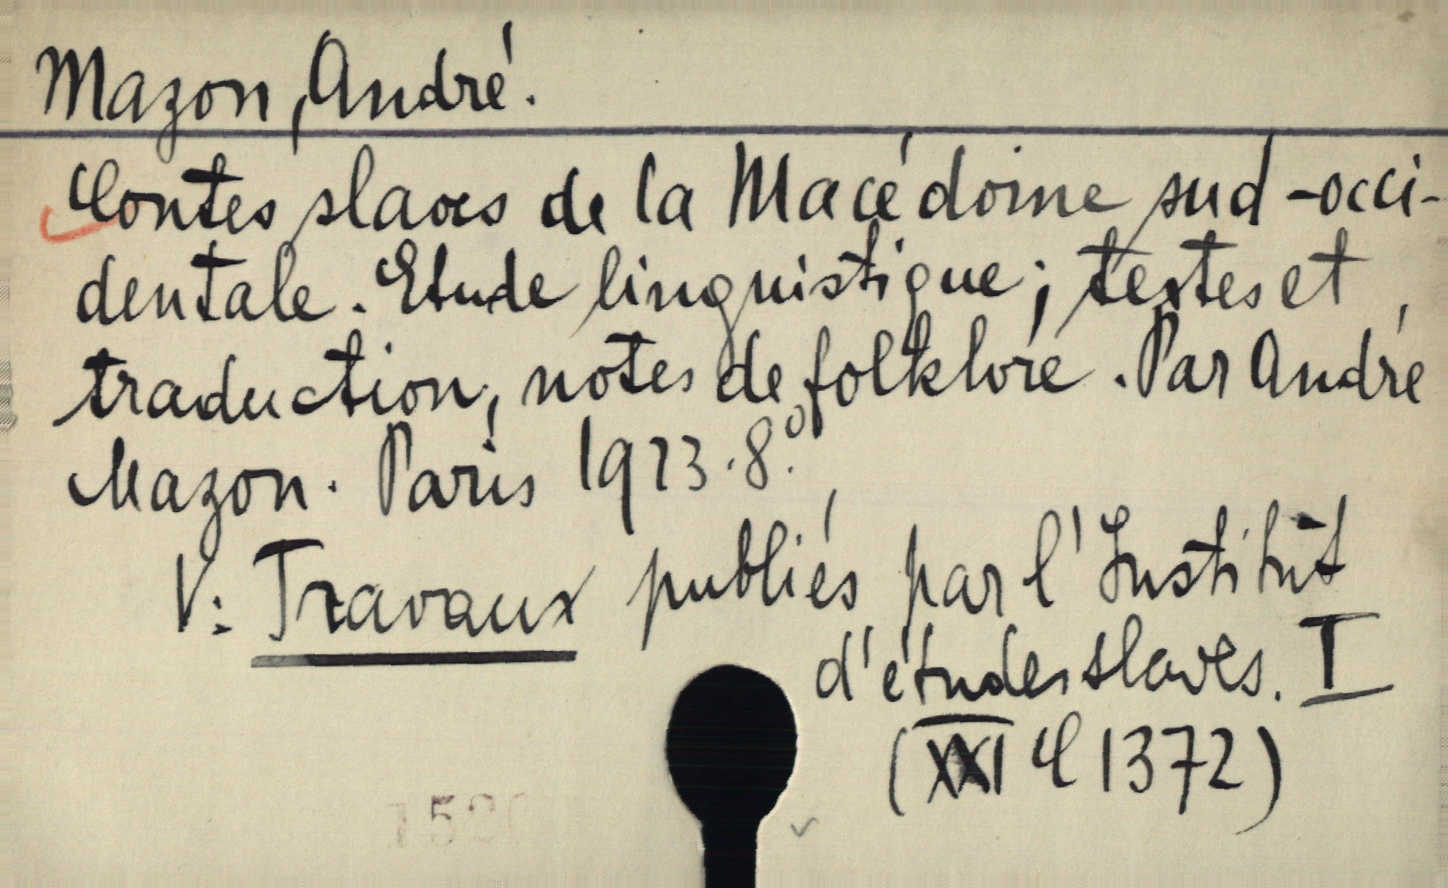 Mazon, André.
Contes slaves de la Macédoine sud-occi-
dentale. Etude linguistique; textes et
traduction, notes de folklore. Par André
Mazon. Paris 1923. 8°.
V: Travaux publiés par l'Institut
d'études slaves. I
(XXI C 1372)